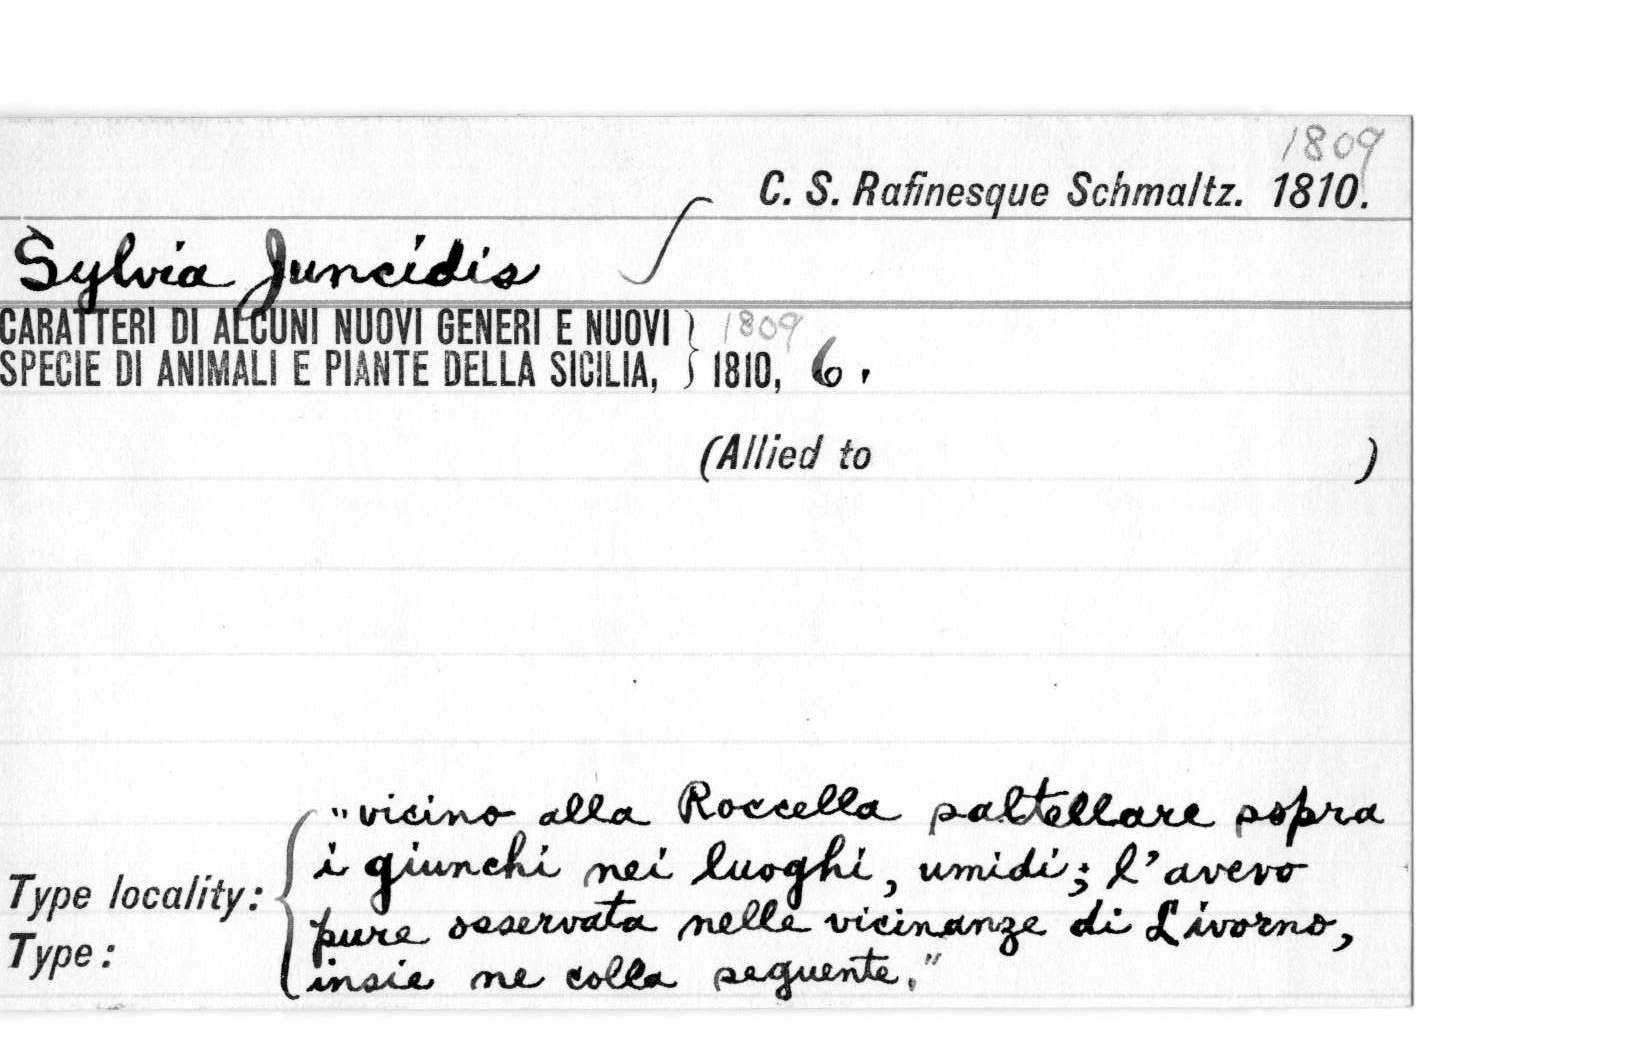 1809
C. S. Rafinesque Schmaltz. 1810.
Sylvia Juncidis
CARATTERI DI ALCUNI NUOVI GENERI E NUOVI
SPECIE DI ANIMALI E PIANTE DELLA SICILIA, } 1809 1810, 6.
(Allied to )
"vicino alla Roccella saltellare sopra
i giunchi nei luoghi, umidi; l'avevo
Type locality: pure osservata nelle vicinanze di Livorno,
Type: insie ne colla seguente."